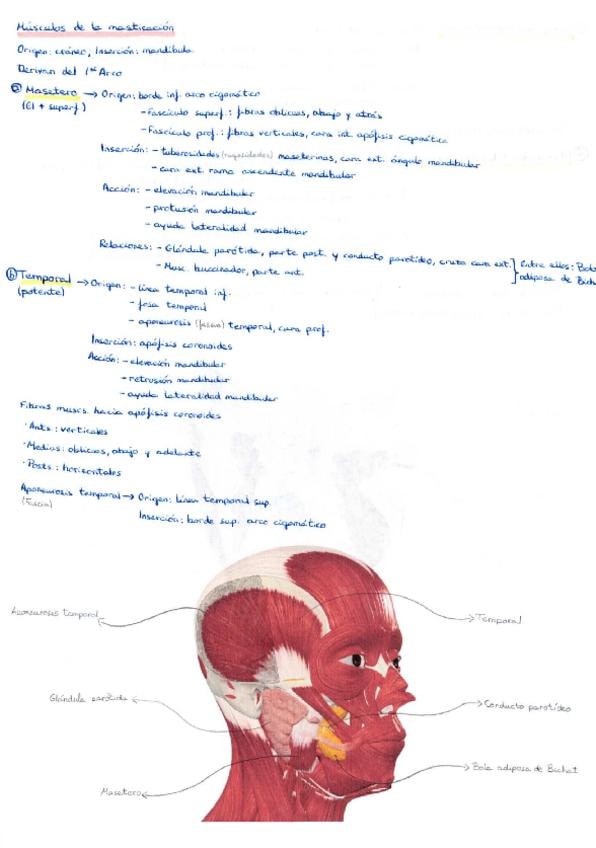 Músculos de la masticación
Origen: cráneo, Inserción: mandíbula
Derivan del 1er Arco
a Masetero → Origen: borde inf. arco cigomático
(El + superf.)
- Fascículo superf.: fibras oblicuas, abajo y atrás
- Fascículo prof.: fibras verticales, cara int. apófisis cigomática
Inserción: - tuberosidades (rugosidades) maseterinas, cara ext. ángulo mandibular
- cara ext. rama ascendente mandibular
Acción: - elevación mandibular
- protusión mandibular
- ayuda lateralidad mandibular
Relaciones: - Glándula parótida, parte post. y conducto parotídeo, cruza cara ext.
- Musc. buccinador, parte ant.
Entre ellos: Bola
adiposa de Bich
b Temporal → Origen: - línea temporal inf.
(potente)
- fosa temporal
- aponeurosis (fascia) temporal, cara prof.
Inserción: apófisis coronoides
Acción: - elevación mandibular
- retrusión mandibular
- ayuda lateralidad mandibular
Fibras muscs. hacia apófisis coronoides
· Ants.: verticales
· Medias: oblicuas, abajo y adelante
· Posts.: horizontales
Aponeurosis temporal → Origen: línea temporal sup.
(Fascia)
Inserción: borde sup. arco cigomático
Aponeurosis temporal
Temporal
Glándula parótida
Conducto parotídeo
Masetero
Bola adiposa de Bichat